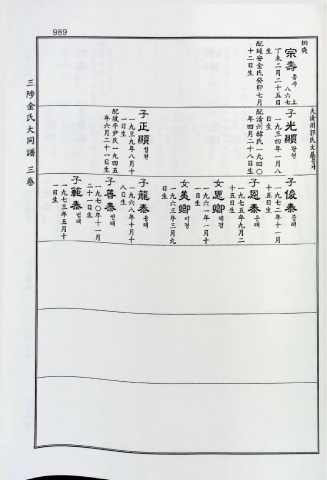 989
三陟金氏大同譜 三卷
宗壽 종수 八六七上
丁未二月二十五日
生
配延安金氏癸卯七月
十二日生
子光顯 광현
一九三四年一月八
日生
配清州韓氏一九四〇
年四月二十八日生
子正顯 정현
一九三九年八月十
一日生
配坡平尹氏一九四五
年六月二十一日生
子俊泰 준태
一九七二年十一月
十五日生
子恩泰 은태
一九七五年九月二
十五日生
女惠卿 혜경
一九六一年一月十
日生
女美卿 미경
一九六三年三月九
日生
子龍泰 용태
一九六八年十月十
八日生
子善泰 선태
一九七〇年十一月
二十一日生
子範泰 범태
一九七三年五月十
一日生